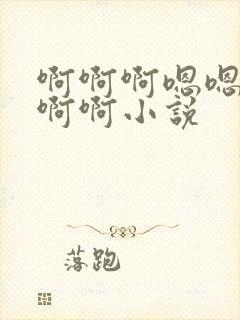 啊啊啊嗯嗯
啊啊小説
落跑